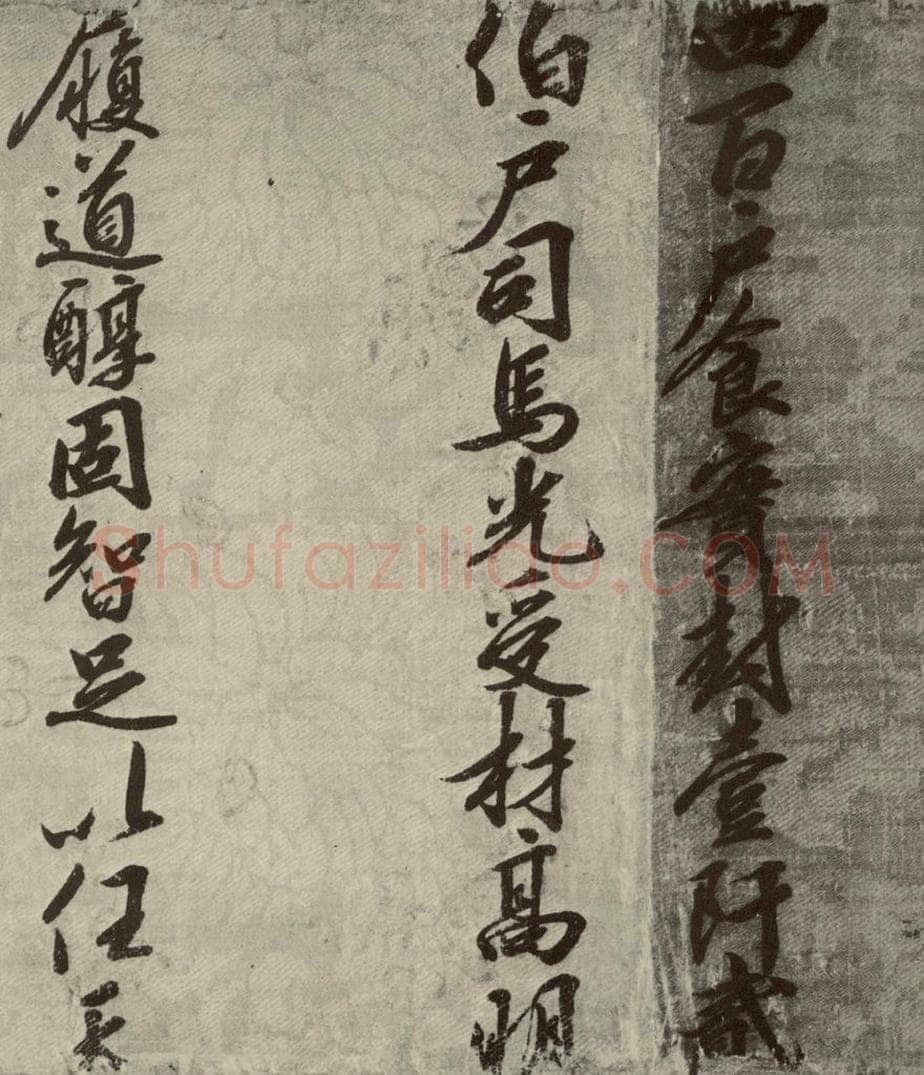 四百户食實封壹阡貳
伯户司馬光受材高明
履道醇固智足以任天
Shufaziliao.COM